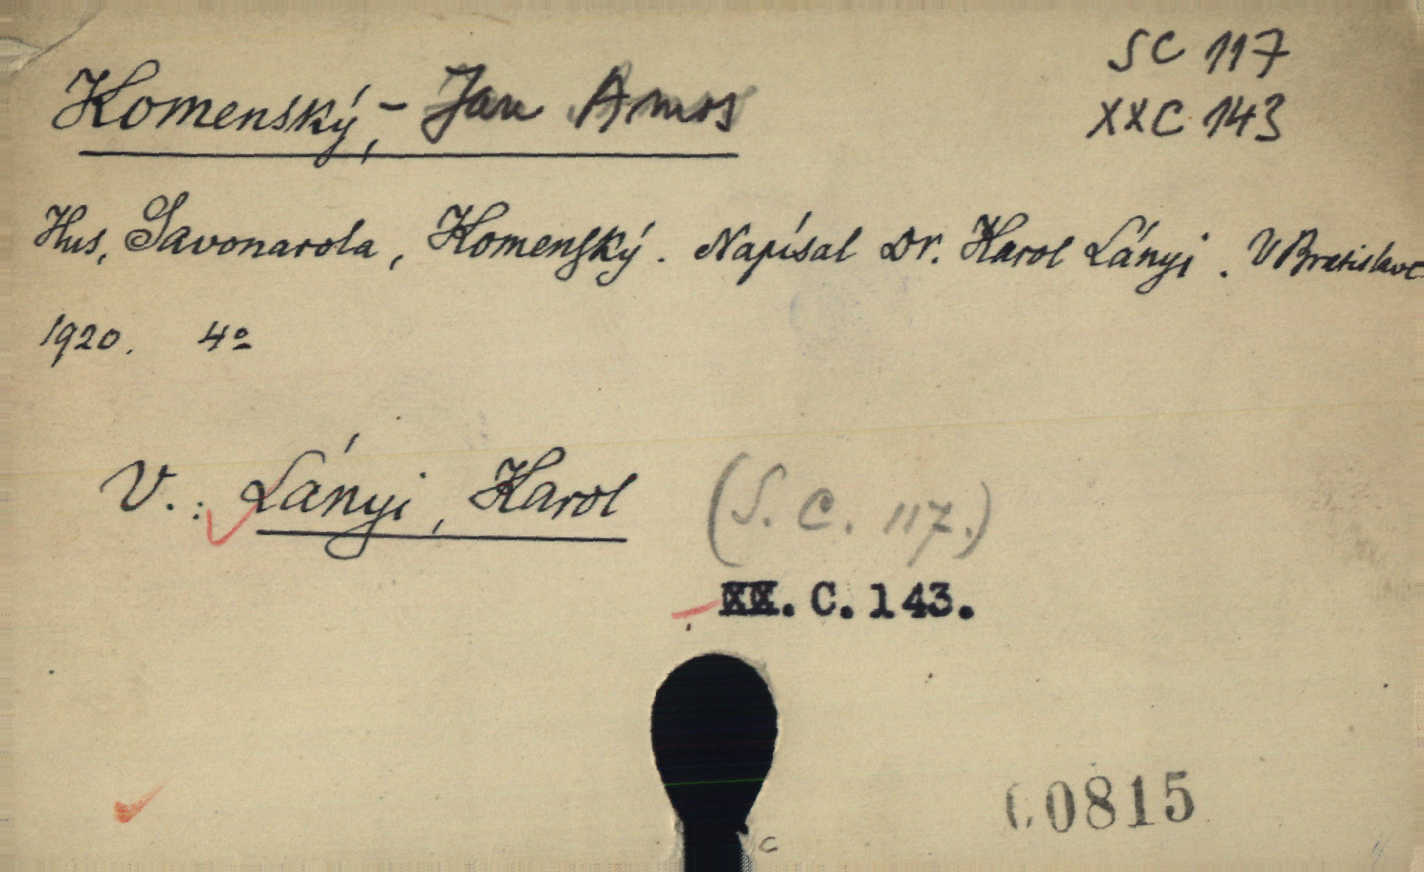 SC 117
Komenský, - Jan Amos
XXC 143
Hus, Savonarola, Komenský. Napísal Dr. Karol Lányi. V Bratislave
1920. 4º
V.: Lányi, Karol (S. C. 117.)
XX. C. 143.
00815
c